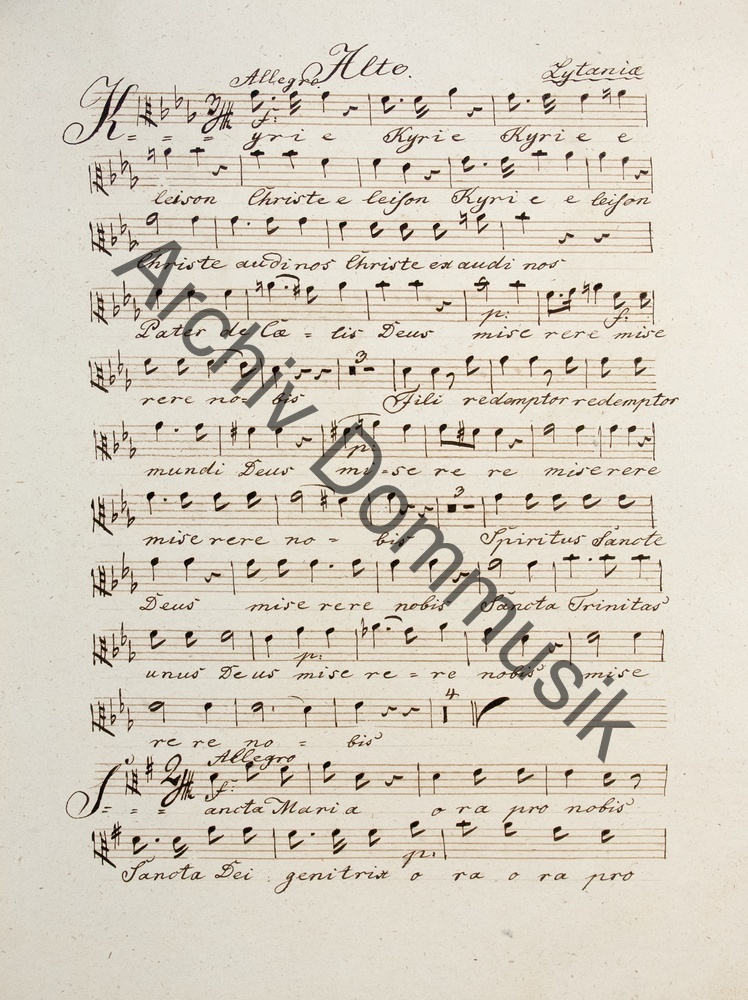 Alto. Lytaniæ
Allegro
f:
K = = = yri e Kyri e Kyri e e
leison Christe e leison Kyri e e leison
Christe audi nos Christe ex audi nos
p: f:
Pater de Cæ = lis Deus mise rere mise
3
rere no = bis Fili redemptor redemptor
p:
mundi Deus mi = se re re miserere
3
mise rere no = bis Spiritus Sancte
Deus mise rere nobis Sancta Trinitas
p:
unus Deus mise re = re nobis mise
4
re re no = bis
Allegro
f:
S = = = ancta Maria o ra pro nobis
p:
Sancta Dei genitrix o ra o ra pro
Archiv Dommusik